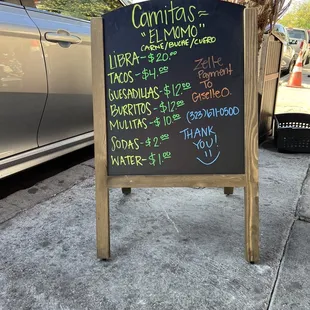 Carnitas =
"EL MOMO"
CARNE/BUCHE/CUERO
LIBRA - $20.00
TACOS - $4.00
QUESADILLAS - $12.00
BURRITOS - $12.00
MULITAS - $10.00
SODAS - $2.00
WATER - $1.00
Zelle
Payment
To
Giselle
(323) 671-0500
THANK
YOU!